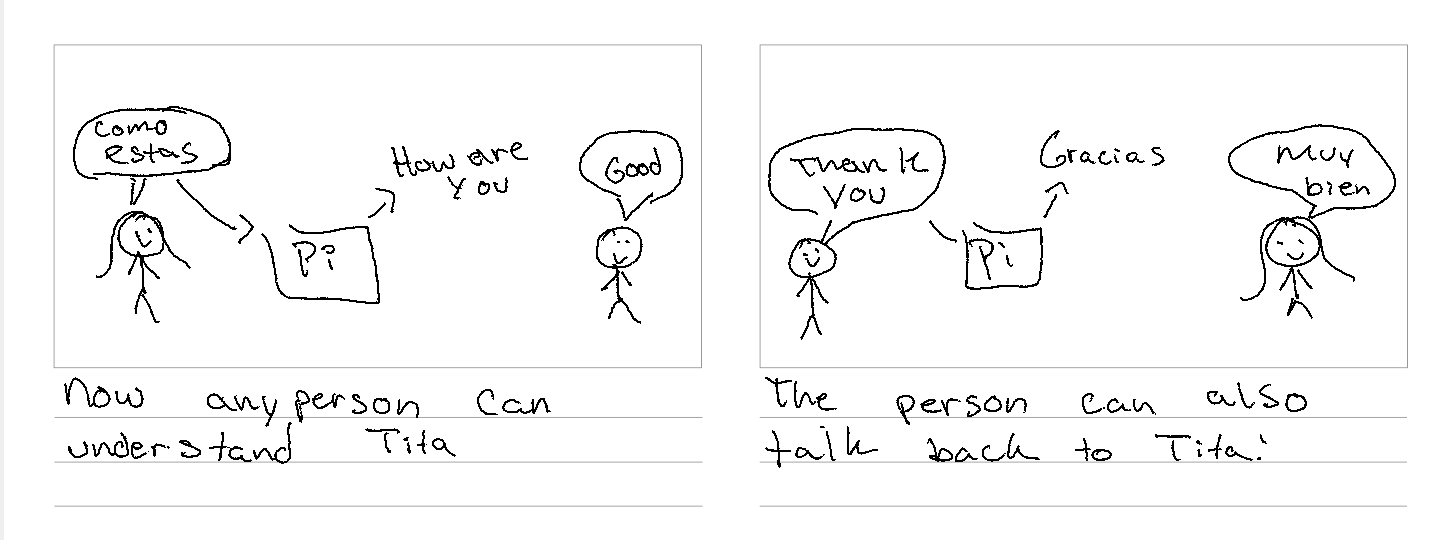 Como
estas
Pi
How are
you
Good
Now any person can
understand Tita
Thank
you
Pi
Gracias
Muy
bien
The person can also
talk back to Tita!